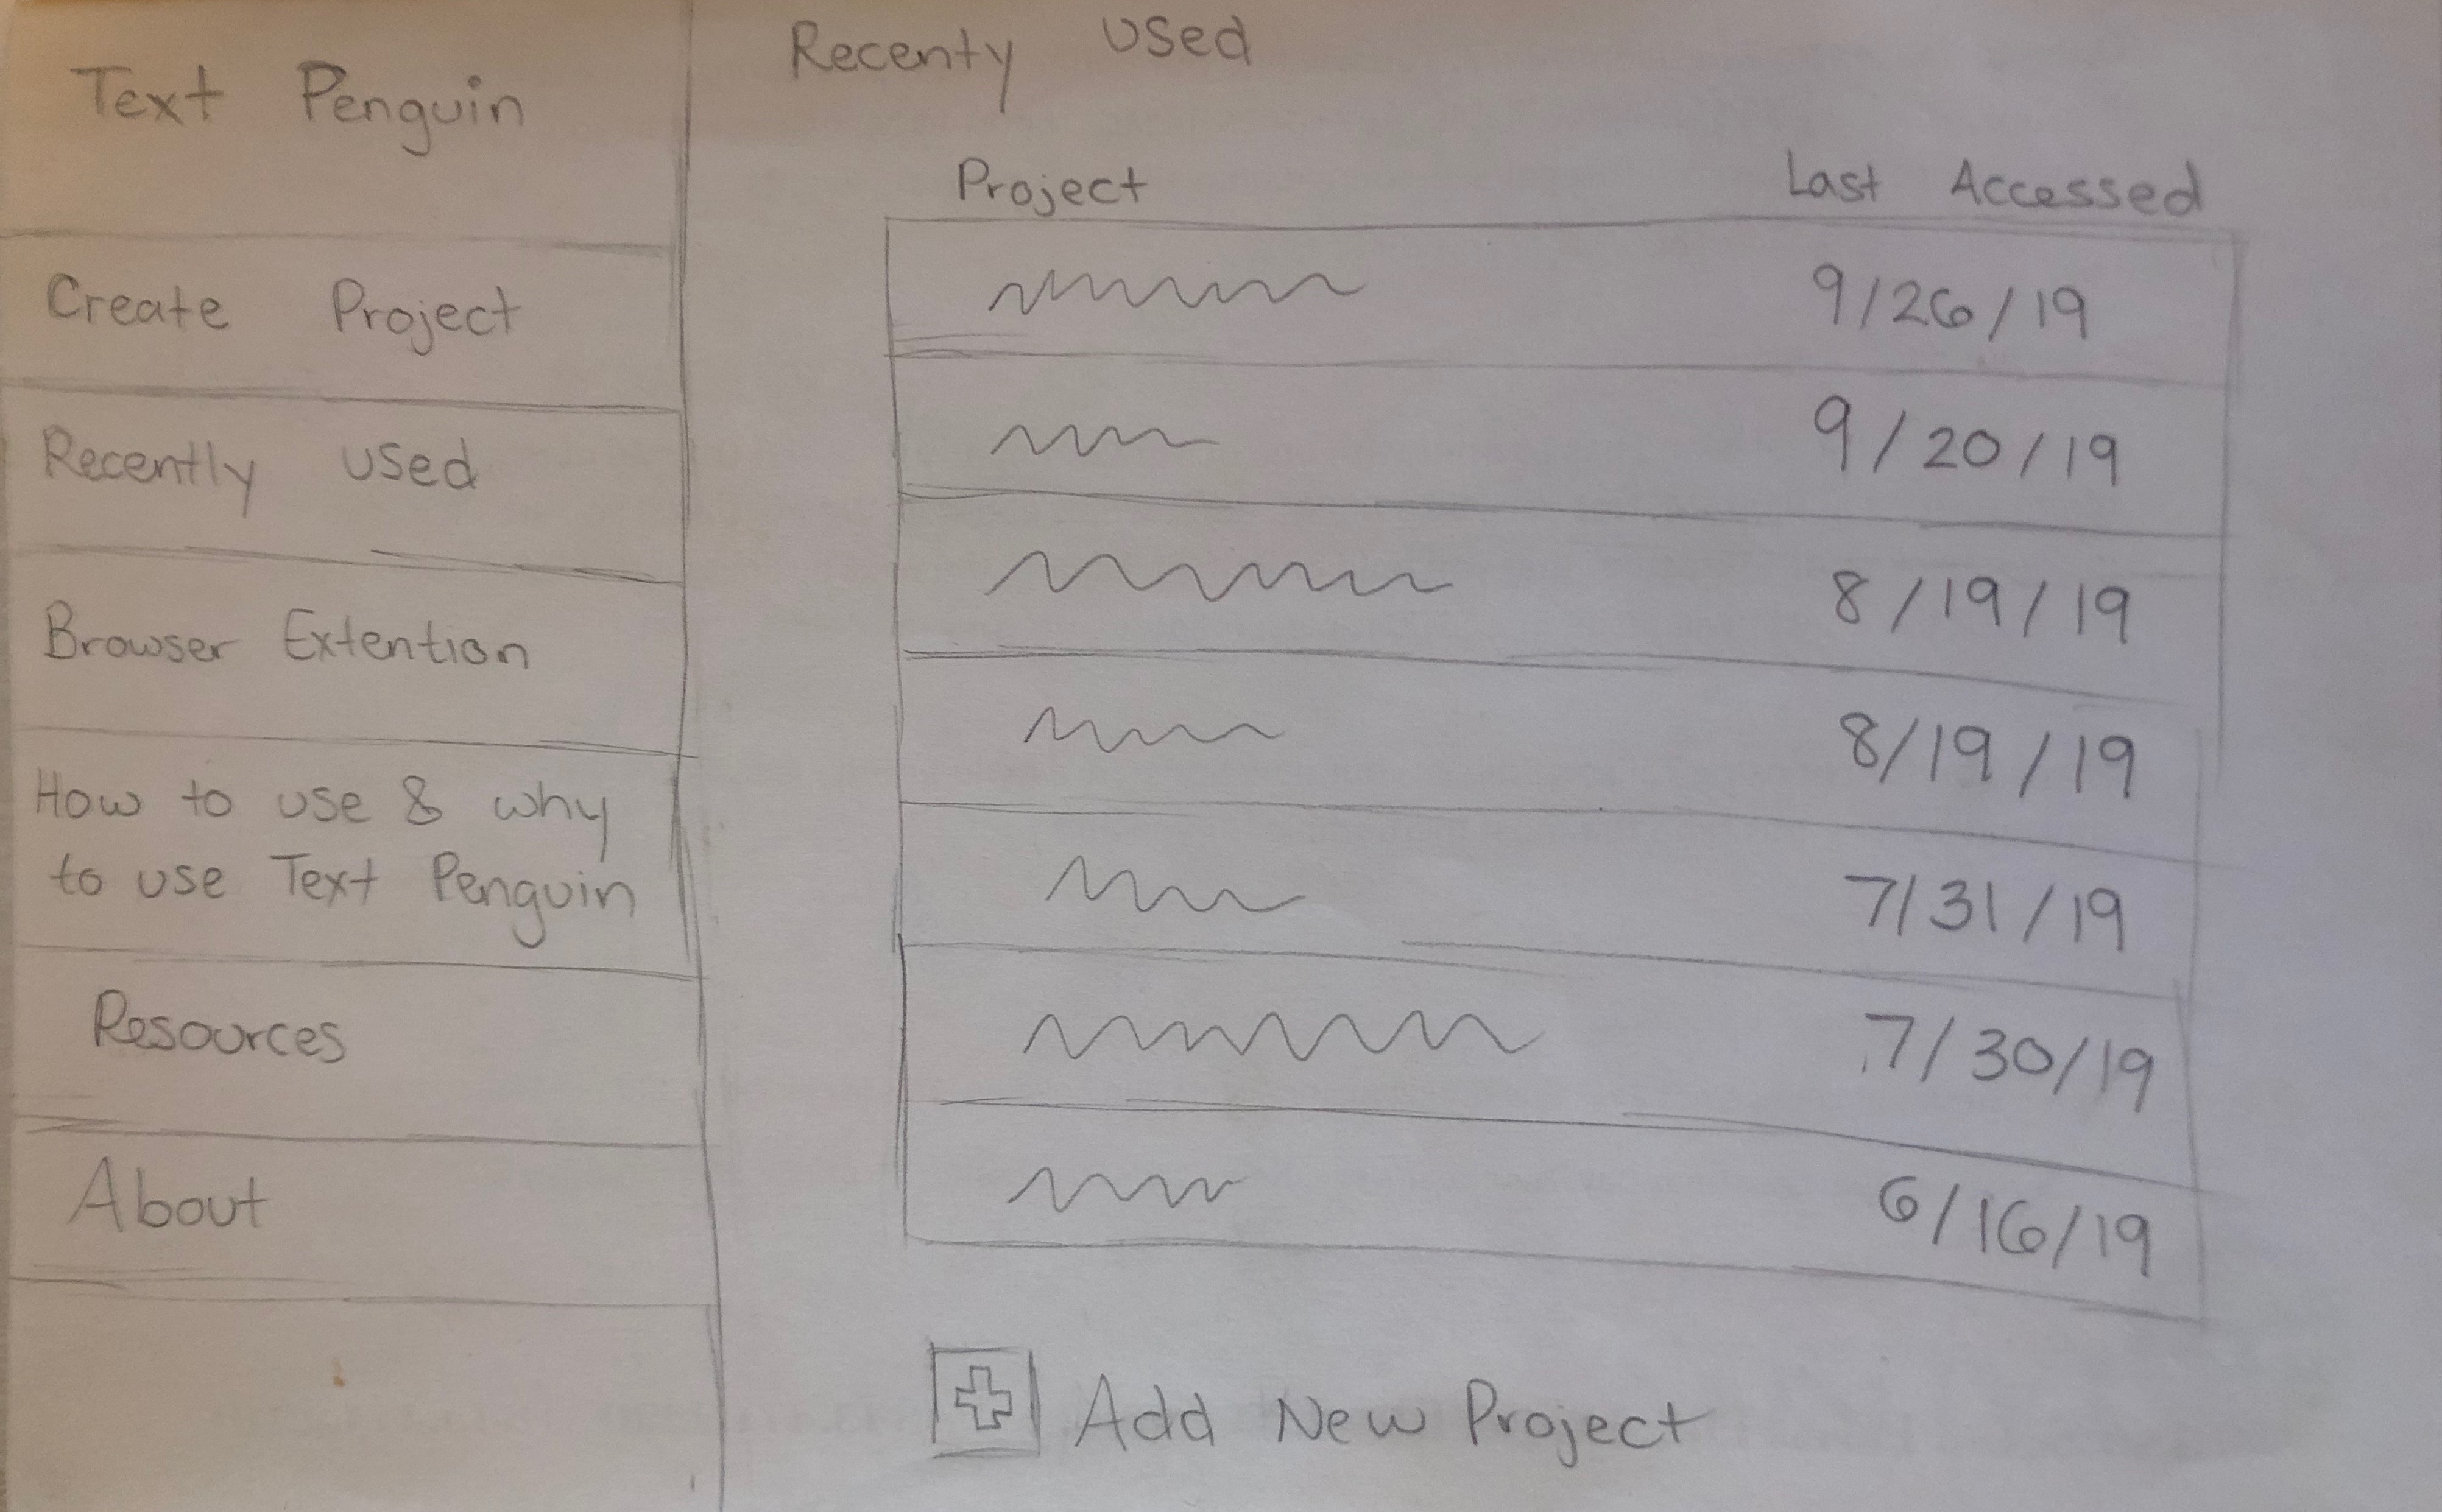 Text Penguin
Create Project
Recently used
Browser Extention
How to use & why
to use Text Penguin
Resources
About
Recenty used
Project Last Accessed
9/26/19
9/20/19
8/19/19
8/19/19
7/31/19
7/30/19
6/16/19
Add New Project